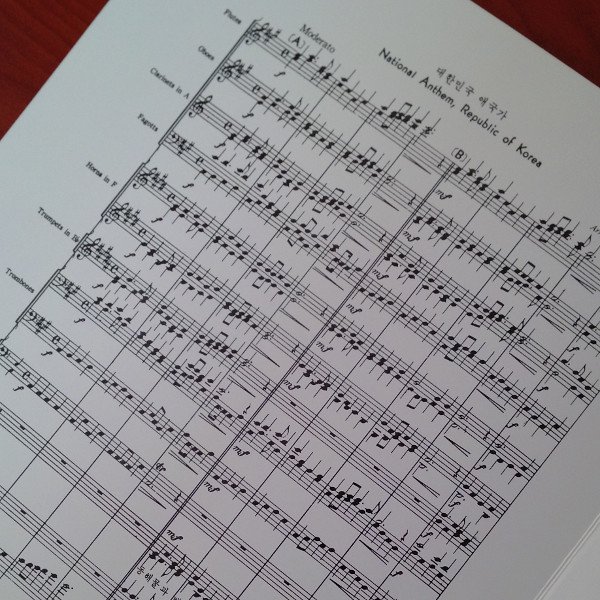 대한민국 애국가
National Anthem, Republic of Korea
Moderato
(A)
(B)
Flutes
Oboes
Clarinets in A
Fagotts
Horns in F
Trumpets in B♭
Trombones
f
f
f
f
f
f
f
f
f
mf
mf
mf
mf
mf
mf
mf
f
f
f
f
f
동해물과